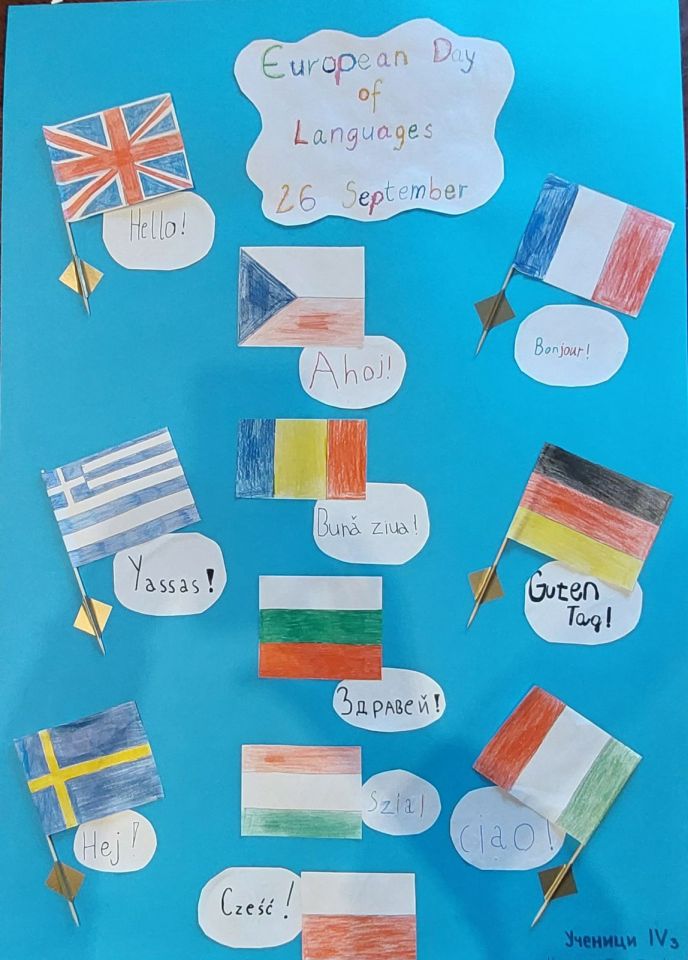 European Day
of
Languages
26 September
Hello!
Bonjour!
Ahoj!
Bună ziua!
Yassas!
Guten
Tag!
Здравей!
Hej!
Szia!
ciao!
Cześć!
Ученици IV з